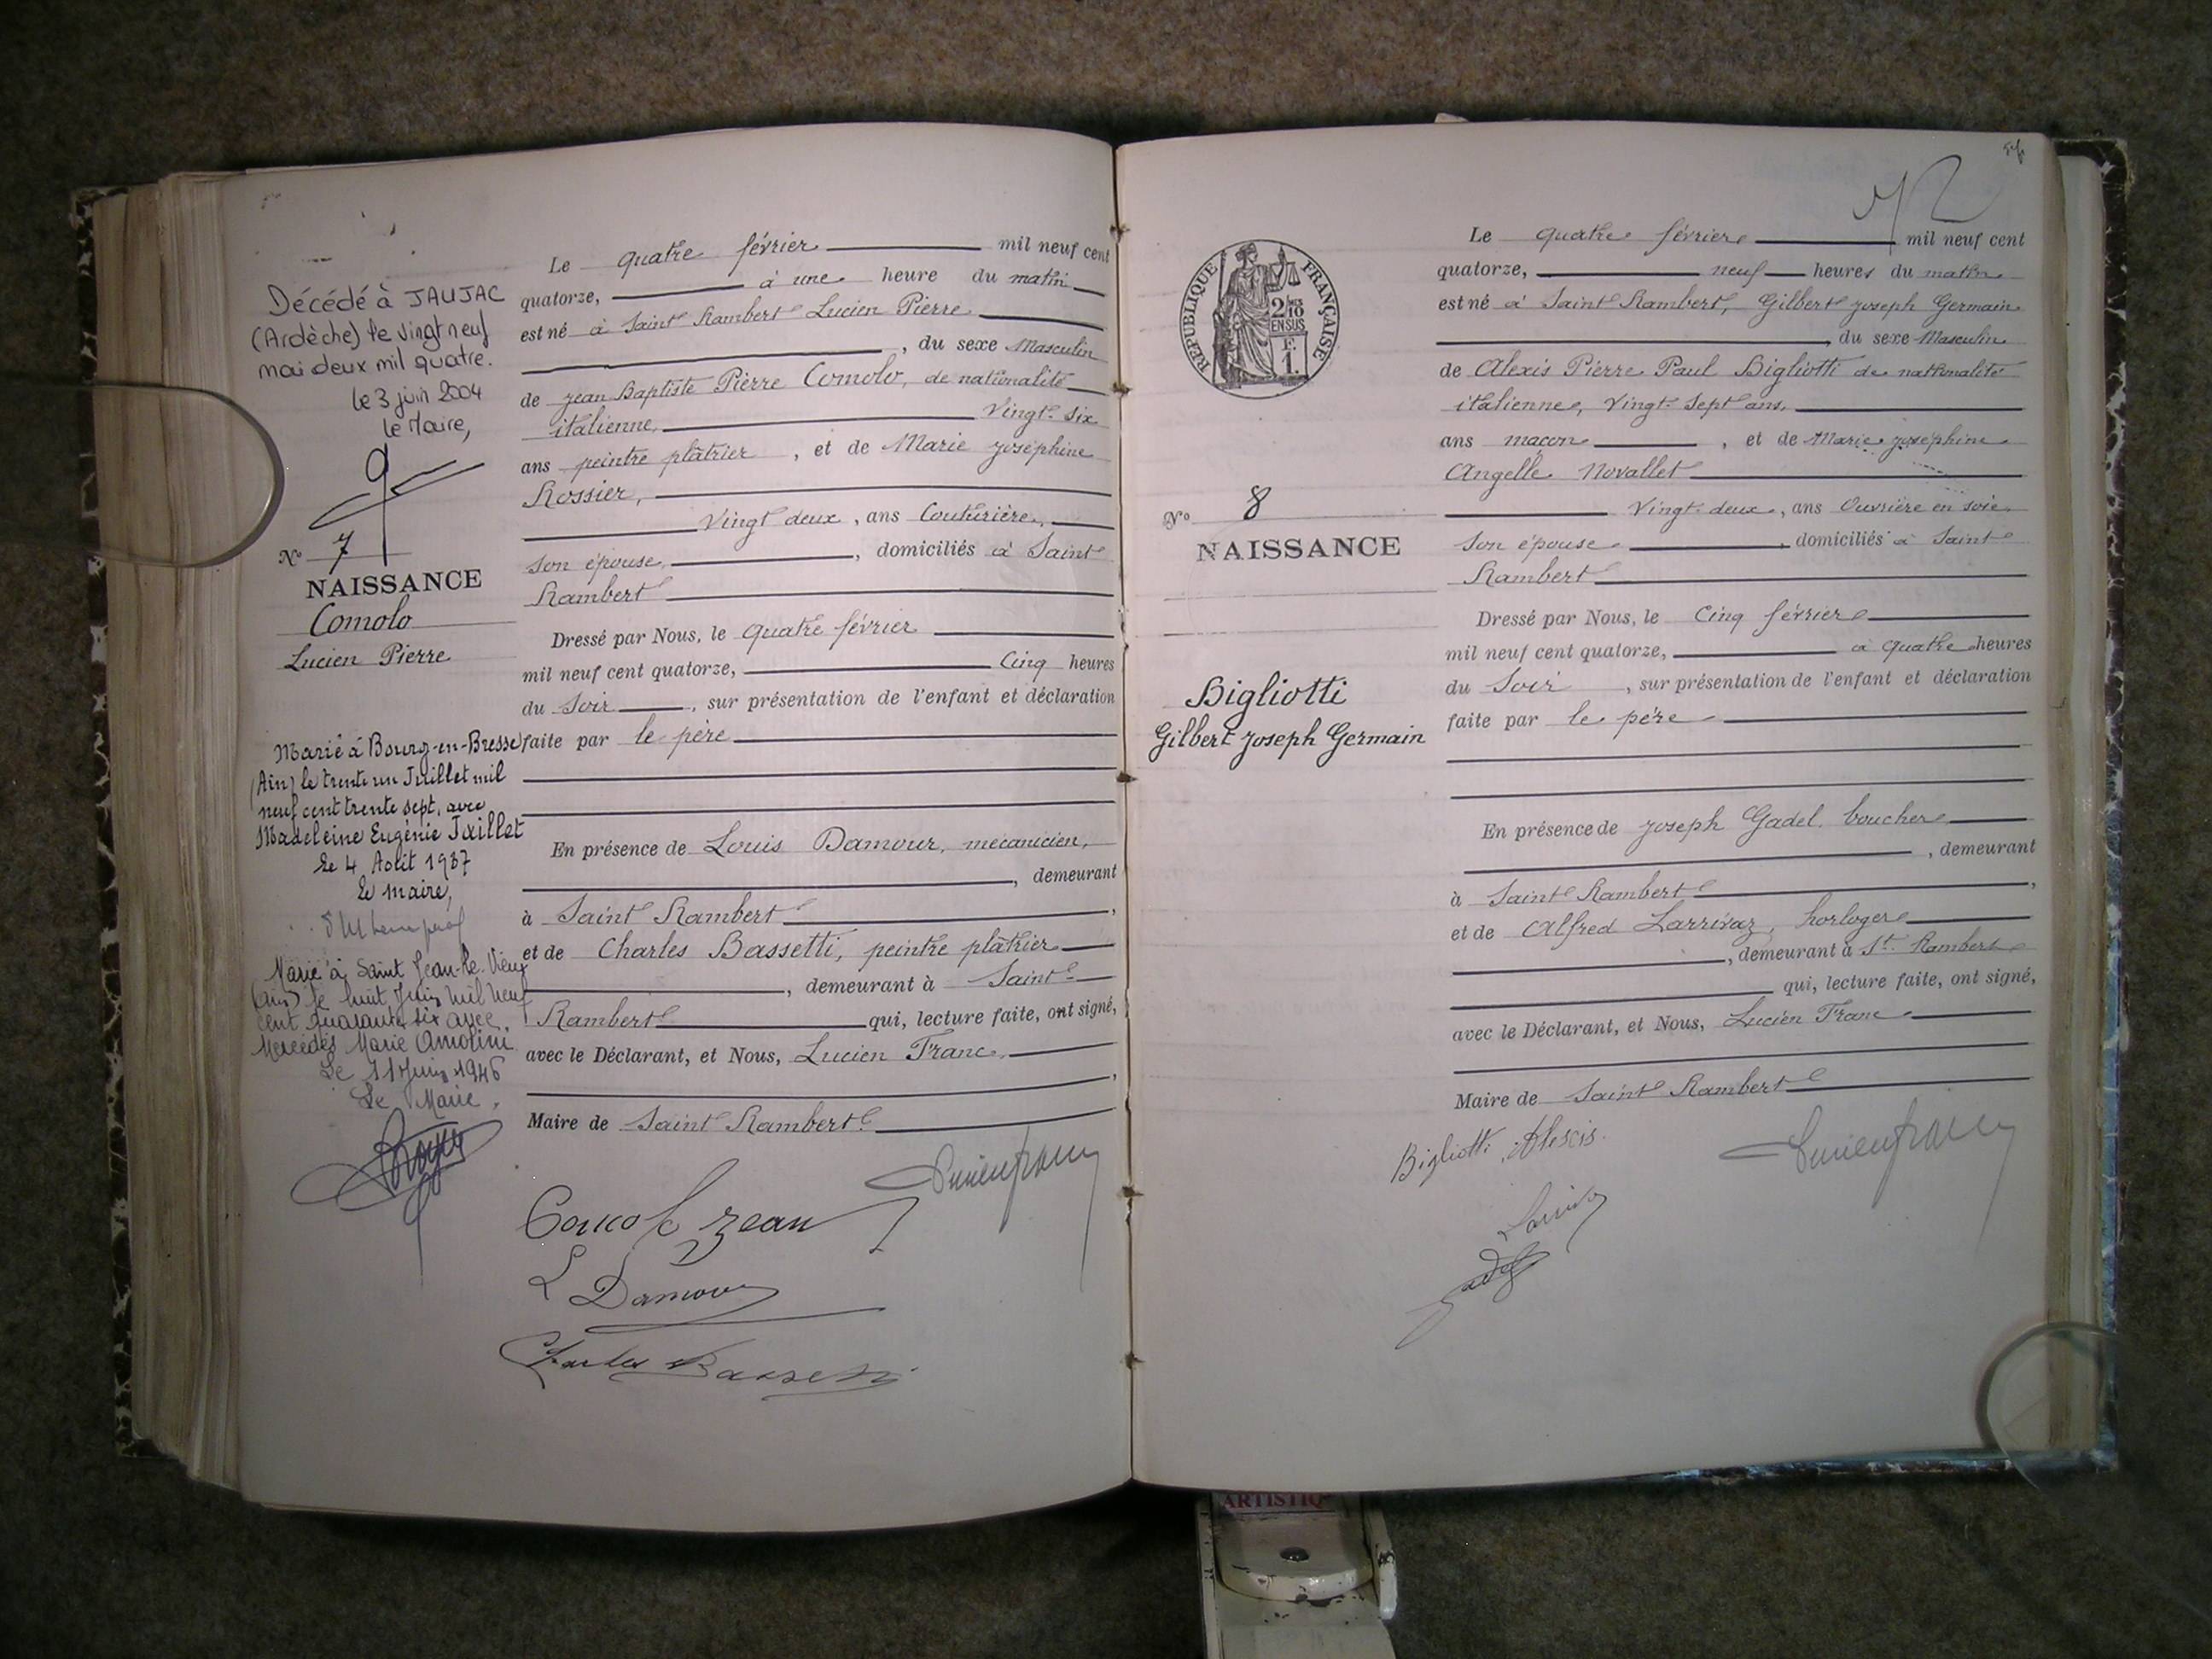 Décédé à JAUJAC
(Ardèche) le vingt neuf
mai deux mil quatre.
le 3 juin 2004
le Maire,
N° 7
NAISSANCE
Comolo
Lucien Pierre
Marié à Bourg-en-Bresse
(Ain) le trente un Juillet mil
neuf cent trente sept, avec
Madeleine Eugénie Juillet
Le 4 Août 1937
Le maire,
Marié à Saint Jean-le-Vieux
(Ain) le huit Juin mil neuf
cent quarante six avec
Mercédès Marie Amolini
Le 11 Juin 1946
Le Maire,
Le quatre février mil neuf cent
quatorze, à une heure du matin
est né à Saint Rambert Lucien Pierre
, du sexe Masculin
de Jean Baptiste Pierre Comolo, de nationalité
italienne, Vingt-six
ans peintre plâtrier, et de Marie Joséphine
Rossier,
Vingt deux, ans Couturière,
son épouse, domiciliés à Saint
Rambert
Dressé par Nous, le quatre février
mil neuf cent quatorze, Cinq heures
du Soir, sur présentation de l'enfant et déclaration
faite par le père
En présence de Louis Damour, mécanicien,
, demeurant
à Saint Rambert,
et de Charles Bassetti, peintre plâtrier
, demeurant à Saint
Rambert qui, lecture faite, ont signé,
avec le Déclarant, et Nous, Lucien Franc,
Maire de Saint Rambert
Comolo Jean
L Damour
Charles Bassetti
RÉPUBLIQUE FRANÇAISE
2/10
EN SUS
1 F.
N° 8
NAISSANCE
Bigliotti
Gilbert Joseph Germain
Le quatre février mil neuf cent
quatorze, neuf heures du matin
est né à Saint Rambert, Gilbert Joseph Germain
, du sexe Masculin
de Alexis Pierre Paul Bigliotti de nationalité
italienne, Vingt-sept ans,
ans maçon, et de Marie Joséphine
Angelle Novallet
Vingt-deux, ans Ouvrière en soie
son épouse, domiciliés à Saint
Rambert
Dressé par Nous, le Cinq février
mil neuf cent quatorze, à quatre heures
du Soir, sur présentation de l'enfant et déclaration
faite par le père
En présence de Joseph Gadel. boucher
, demeurant
à Saint Rambert,
et de Alfred Larrivaz, horloger
, demeurant à St. Rambert
qui, lecture faite, ont signé,
avec le Déclarant, et Nous, Lucien Franc
Maire de Saint Rambert
Bigliotti Alexis
ARTISTIQ